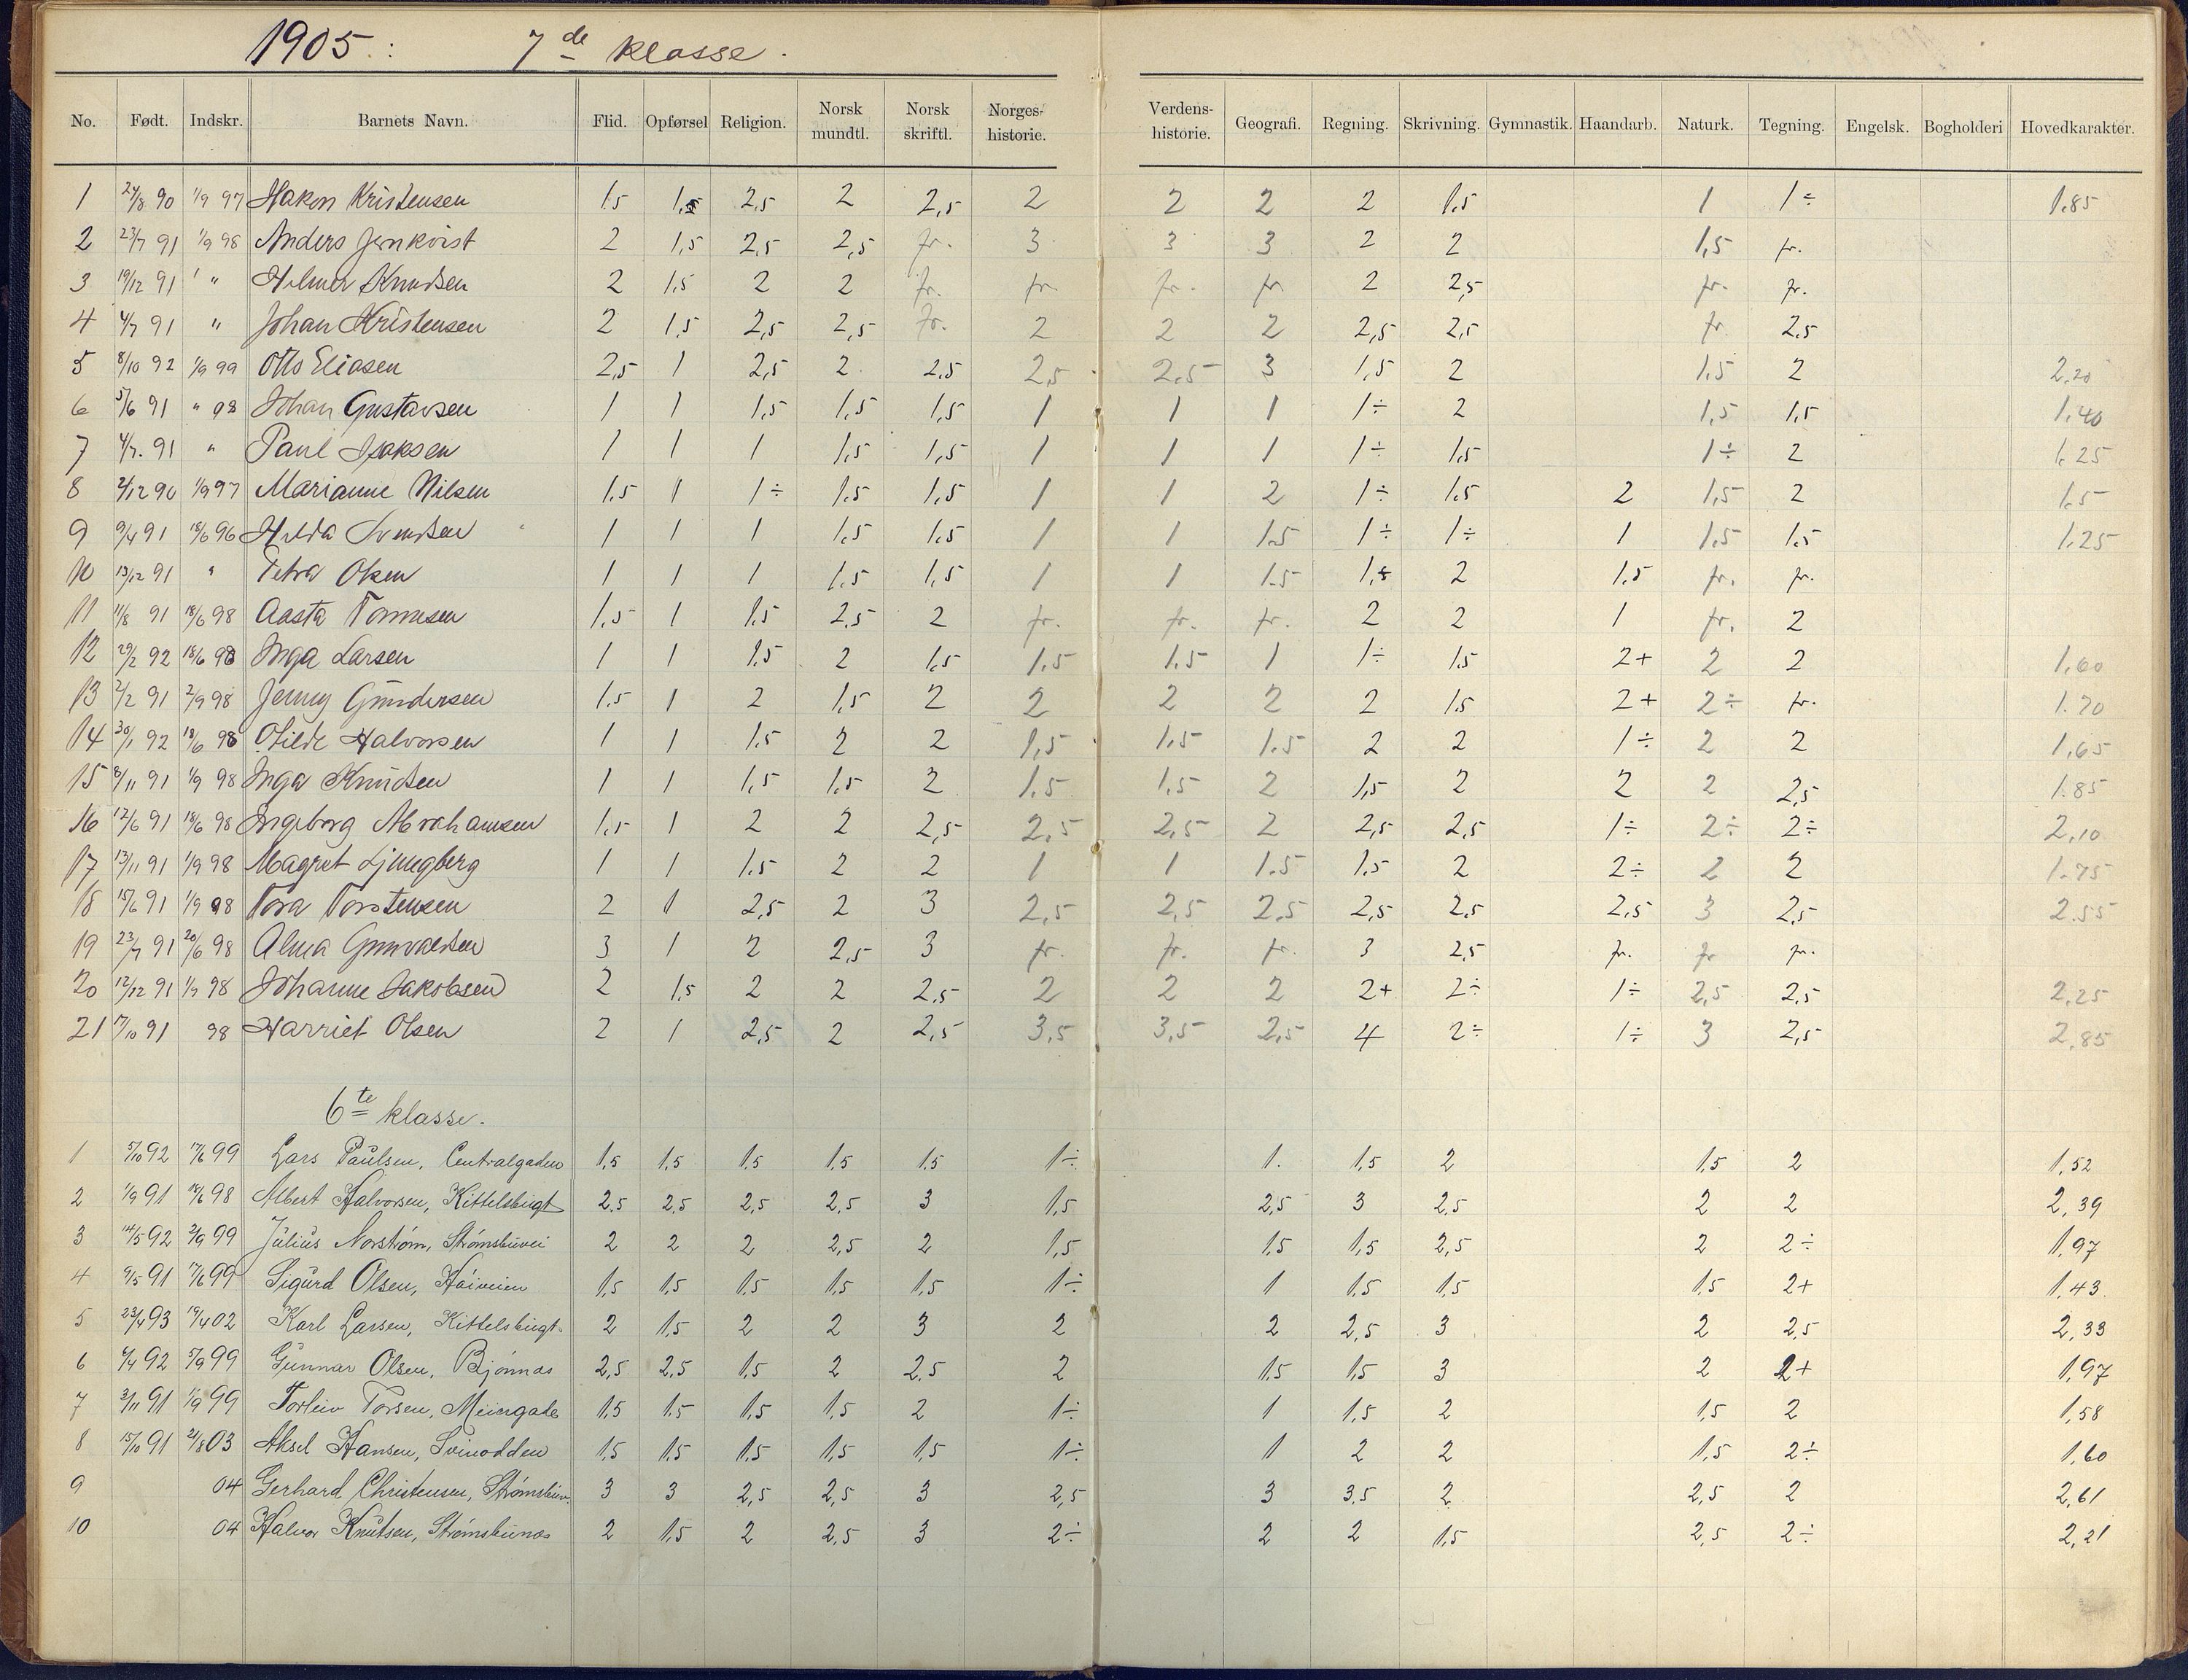 1905: 7de klasse.
No. Født. Indskr. Barnets Navn. Flid. Opførsel Religion. Norsk mundtl. Norsk skriftl. Norges-historie. Verdens-historie. Geografi. Regning. Skrivning. Gymnastik. Haandarb. Naturk. Tegning. Engelsk. Bogholderi Hovedkarakter.
1 24/8 90 1/9 97 Hakon Kristensen 1.5 1,5 2,5 2 2,5 2 2 2 2 1.5 1 1÷ 1.85
2 23/7 91 1/9 98 Anders Jernkvist 2 1,5 2,5 2,5 fr. 3 3 3 2 2 1,5 fr.
3 19/12 91 " Hilmar Knudsen 2 1.5 2 2 fr. fr. fr. fr 2 2,5 fr. fr.
4 4/7 91 " Johan Kristensen 2 1.5 2,5 2,5 fr. 2 2 2 2,5 2,5 fr. 2.5
5 8/10 92 1/9 99 Otto Eliasen 2,5 1 2,5 2 2,5 2,5 2.5 3 1,5 2 1.5 2 2,20
6 5/6 91 " 98 Johan Gustavsen 1 1 1,5 1,5 1,5 1 1 1 1÷ 2 1,5 1,5 1.40
7 4/7. 91 " Paul Isaksen 1 1 1 1,5 1,5 1 1 1 1÷ 1,5 1÷ 2 1.25
8 2/12 90 1/9 97 Marianne Nilsen 1.5 1 1÷ 1.5 1,5 1 1 2 1÷ 1.5 2 1,5 2 1.5
9 9/4 91 18/6 96 Hilda Svendsen 1 1 1 1,5 1,5 1 1 1.5 1÷ 1÷ 1 1,5 1.5 1.25
10 13/12 91 " Petra Olsen 1 1 1 1,5 1,5 1 1 1.5 1,5 2 1.5 fr. fr.
11 11/8 91 18/6 98 Aasta Tønnesen 1,5 1 1,5 2,5 2 fr. fr. fr. 2 2 1 fr. 2
12 29/2 92 18/6 98 Inga Larsen 1 1 1.5 2 1,5 1.5 1.5 1 1÷ 1.5 2+ 2 2 1,60
13 2/2 91 2/9 98 Jenny Gundersen 1.5 1 2 1,5 2 2 2 2 2 1.5 2+ 2÷ fr. 1.70
14 30/1 92 18/6 98 Otilde Halvorsen 1 1 1.5 2 2 1,5 1.5 1.5 2 2 1÷ 2 2 1,65
15 8/11 91 1/9 98 Inga Knudsen 1 1 1,5 1,5 2 1.5 1.5 2 1,5 2 2 2 2,5 1.85
16 12/6 91 18/6 98 Ingeborg Abrahamsen 1.5 1 2 2 2,5 2,5 2,5 2 2,5 2,5 1÷ 2÷ 2÷ 2,10
17 13/11 91 1/9 98 Magret Ljungberg 1 1 1.5 2 2 1 1 1.5 1.5 2 2÷ 2 2 1.75
18 15/6 91 1/9 98 Tora Torstensen 2 1 2,5 2 3 2,5 2,5 2,5 2,5 2,5 2,5 3 2,5 2.55
19 23/7 91 20/6 98 Alma Gunvaldsen 3 1 2 2,5 3 fr. fr. fr. 3 2,5 fr. fr fr.
20 12/12 91 1/9 98 Johanne Jakobsen 2 1,5 2 2 2.5 2 2 2 2+ 2÷ 1÷ 2,5 2,5 2,25
21 17/10 91 98 Harriet Olsen 2 1 2,5 2 2,5 3,5 3,5 2,5 4 2÷ 1÷ 3 2,5 2,85
6te klasse.
1 5/10 92 17/6 99 Lars Paulsen, Centralgaden 1,5 1,5 1,5 1,5 1.5 1÷ 1. 1,5 2 1,5 2 1,52
2 1/9 91 18/6 98 Albert Halvorsen, Kittelsbugt 2.5 2,5 2,5 2,5 3 1,5 2,5 3 2,5 2 2 2,39
3 14/5 92 2/9 99 Julius Norstrøm, Strømsbuvei 2 2 2 2,5 2 1,5 1,5 1,5 2,5 2 2÷ 1,97
4 9/5 91 17/6 99 Sigurd Olsen, Høiveien 1,5 1,5 1,5 1,5 1,5 1÷ 1 1,5 1,5 1,5 2+ 1,43.
5 23/4 93 19/4 02 Karl Larsen, Kittelsbugt. 2 1,5 2 2 3 2 2 2,5 3 2 2,5 2,33
6 6/4 92 5/9 99 Gunnar Olsen, Bjønnæs 2,5 2,5 1,5 2 2,5 2 1,5 1,5 3 2 2+ 1,97
7 3/11 91 1/9 99 Torleiv Torsen, Meiergade 1,5 1,5 1,5 1,5 2 1÷ 1 1,5 2 1,5 2 1,58
8 15/10 91 21/8 03 Aksel Hansen, Svinodden 1,5 1,5 1,5 1,5 1,5 1÷ 1 2 2 1,5 2÷ 1,60
9 04 Gerhard Christensen, Strømsbuv. 3 3 2,5 2,5 3 2,5 3 3,5 2 2,5 2 2,61
10 04 Halvor Knutsen, Strømsbunæs 2 1,5 2 2,5 3 2÷ 2 2 1,5 2,5 2÷ 2,21